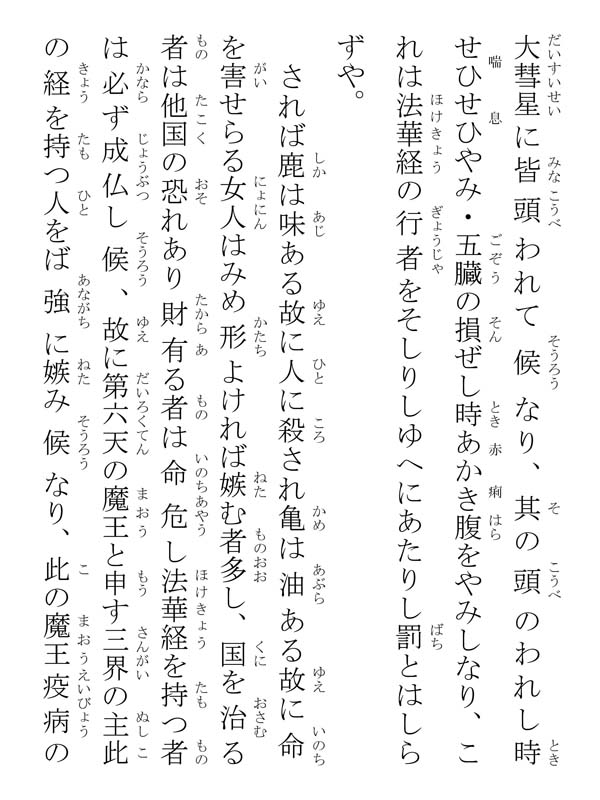 大彗星に皆頭われて候なり、其の頭のわれし時
せひせひやみ・五臓の損ぜし時あかき腹をやみしなり、こ
れは法華経の行者をそしりしゆへにあたりし罰とはしら
ずや。
されば鹿は味ある故に人に殺され亀は油ある故に命
を害せらる女人はみめ形よければ嫉む者多し、国を治る
者は他国の恐れあり財有る者は命危し法華経を持つ者
は必ず成仏し候、故に第六天の魔王と申す三界の主此
の経を持つ人をば強に嫉み候なり、此の魔王疫病の